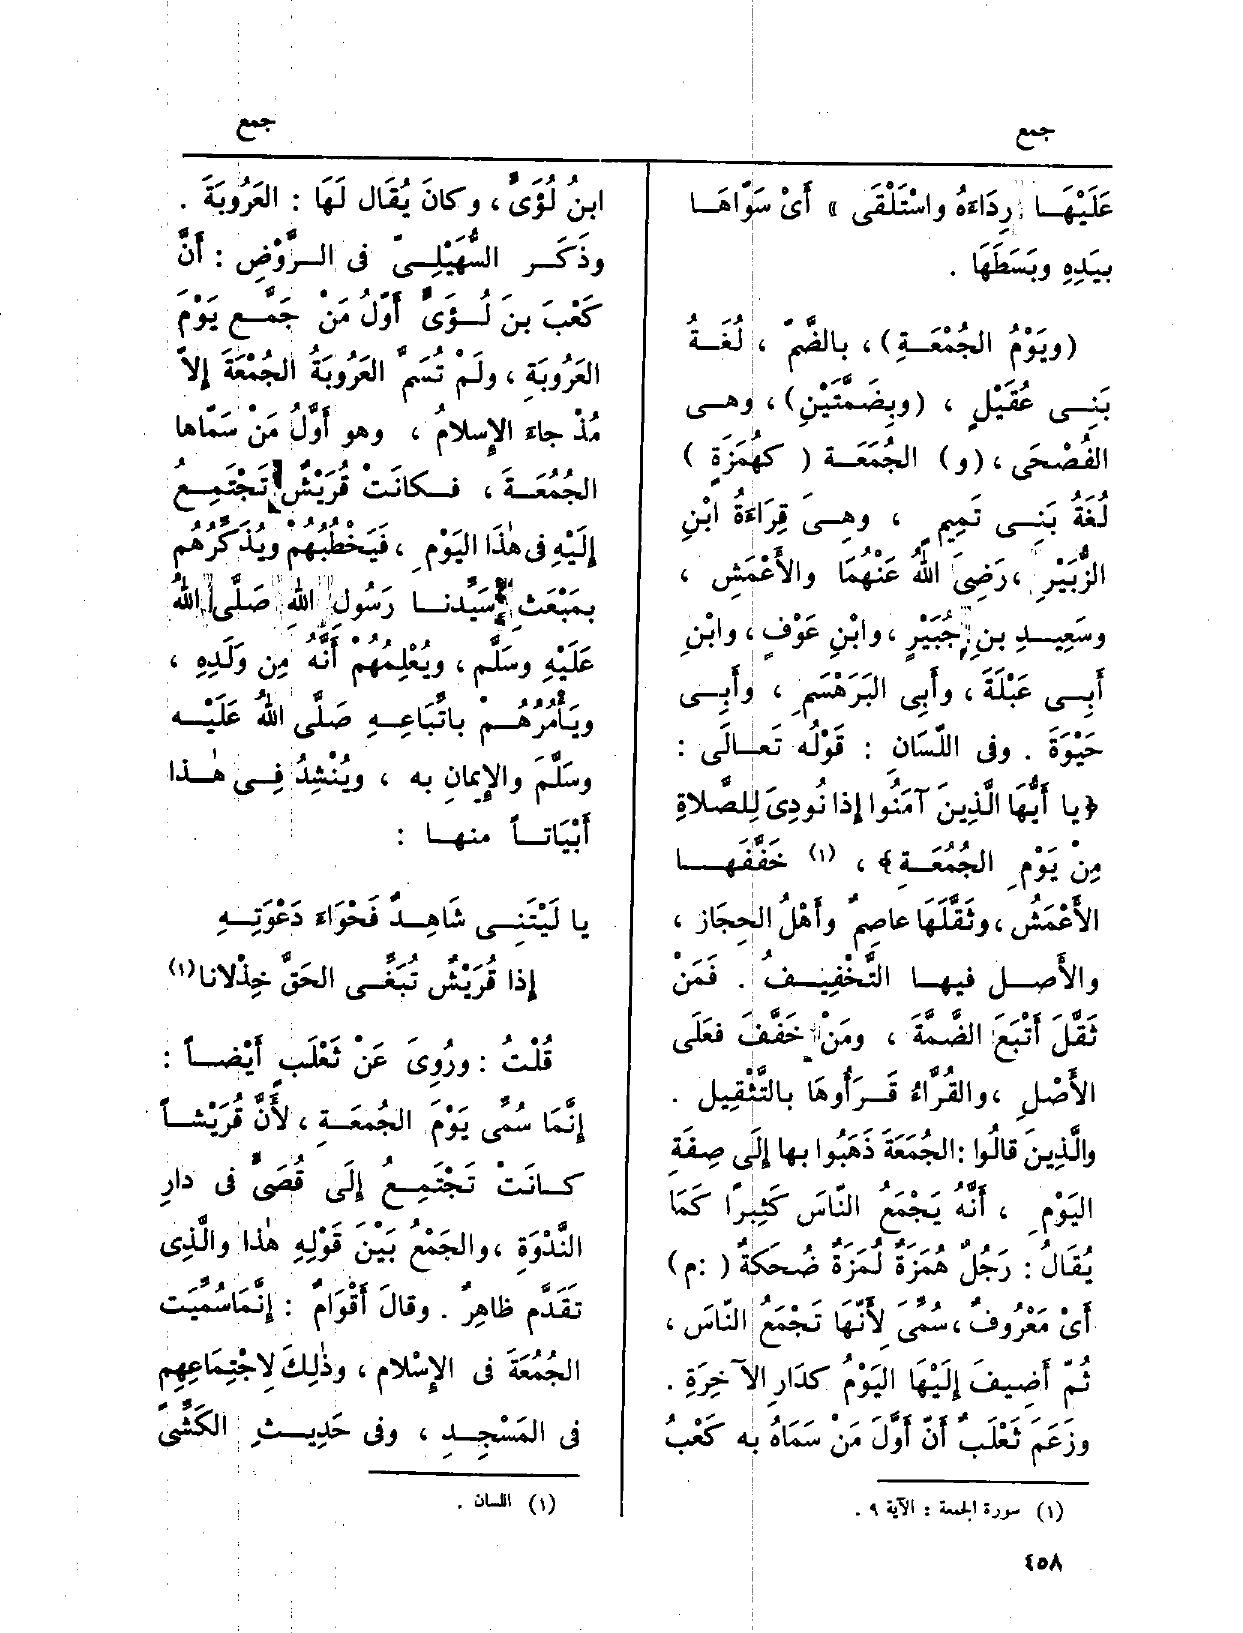 جمع
عَلَيْهَا رِدَاءَهُ واسْتَلْقَى » أَىْ سَوّاهَا
بِيَدِهِ وبَسَطَهَا .
(ويَوْمُ الجُمْعَةِ)، بالضَّمّ ، لُغَةُ
بَنِى عُقَيْلٍ ، (وبِضَمَّتَيْنِ)، وهى
الفُصْحَى ، (و) الجُمَعَة ( كهُمَزَةٍ )
لُغَةُ بَنِى تَمِيمٍ ، وهِىَ قِرَاءَةُ ابْنِ
الزُّبَيْرِ ، رَضِىَ اللهُ عَنْهُمَا والأَعْمَشِ ،
وسَعِيدِ بنِ جُبَيْرٍ ، وابْنِ عَوْفٍ ، وابْنِ
أَبِى عَبْلَةَ ، وأَبِى البَرَهْسَمِ ، وأَبِى
حَيْوَةَ . وفى اللّسَان : قَوْلُه تَعالَى :
﴿يا أَيُّهَا الَّذِينَ آمَنُوا إِذا نُودِىَ لِلصَّلاةِ
مِنْ يَوْمِ الجُمُعَةِ﴾ ، (١) خَفَّفَها
الأَعْمَشُ ، وثَقَّلَهَا عاصِمٌ وأَهْلُ الحِجَازِ ،
والأَصل فيها التَّخْفِيفُ . فَمَنْ
ثَقَّلَ أَتْبَعَ الضَّمَّةَ ، ومَنْ خَفَّفَ فعَلَى
الأَصْلِ ، والقُرَّاءُ قَرَأُوهَا بالتَّثْقِيل .
والَّذِينَ قالُوا : الجُمَعَةَ ذَهَبُوا بها إِلَى صِفَةِ
اليَوْمِ ، أَنَّهُ يَجْمَعُ النّاسَ كَثِيرًا كَمَا
يُقَالُ : رَجُلٌ هُمَزَةٌ لُمَزَةٌ ضُحَكَةٌ ( :م)
أَىْ مَعْرُوفٌ ، سُمِّىَ لِأَنَّهَا تَجْمَعُ النّاسَ ،
ثُمّ أُضِيفَ إِلَيْهَا اليَوْمُ كدَارِ الآخِرَةِ .
وزَعَمَ ثَعْلَبٌ أَنّ أَوَّلَ مَنْ سَمّاهُ به كَعْبُ
(١) سورة الجمعة : الآية ٩ .
٤٥٨
جمع
ابنُ لُؤَىٍّ ، وكانَ يُقَال لَهَا : العَرُوبَةَ .
وذَكَر السُّهَيْلِىّ فى الرَّوْضِ : أَنَّ
كَعْبَ بنَ لُؤَىٍّ أَوّلُ مَنْ جَمَّع يَوْمَ
العَرُوبَةِ ، ولَمْ تُسَمَّ العَرُوبَةُ الجُمْعَةَ إِلاّ
مُذْ جاءَ الإِسلامُ ، وهو أَوَّلُ مَنْ سَمّاها
الجُمُعَةَ ، فكانَتْ قُرَيْشٌ تَجْتَمِعُ
إِلَيْهِ فى هٰذَا اليَوْمِ ، فيَخْطُبُهُمْ ويُذَكِّرُهُم
بمَبْعَثِ سَيِّدنا رَسُولِ اللهِ صَلَّى اللهُ
عَلَيْهِ وسَلَّم ، ويُعْلِمُهُمْ أَنَّهُ مِن وَلَدِهِ ،
ويَأْمُرُهُمْ باتِّبَاعِهِ صَلَّى اللهُ عَلَيْه
وسَلَّمَ والإِيمانِ به ، ويُنْشِدُ فِى هٰذا
أَبْيَاتاً منها :
يا لَيْتَنِى شَاهِدٌ فَحْوَاءَ دَعْوَتِهِ
إِذا قُرَيْشٌ تُبَغِّى الحَقَّ خِذْلانا (١)
قُلْتُ : ورُوِىَ عَنْ ثَعْلَبٍ أَيْضاً :
إِنَّمَا سُمِّىَ يَوْمَ الجُمعَةِ ، لأَنَّ قُرَيْشاً
كانَتْ تَجْتَمِعُ إِلَى قُصَىٍّ فى دارِ
النَّدْوَةِ ، والجَمْعُ بَيْنَ قَوْلِهِ هٰذا والَّذِى
تَقَدَّم ظاهِرٌ . وقالَ أَقْوَامٌ : إِنَّما سُمِّيَت
الجُمُعَةَ فى الإِسْلام ، وذٰلِكَ لِاجْتِمَاعِهِم
فى المَسْجِدِ ، وفى حَدِيثِ الكَشِّىّ
(١) اللسان .